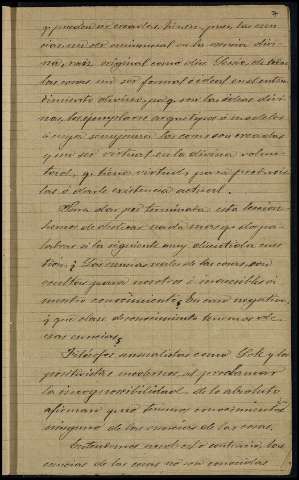 7
q. pueden ser creadas, tienen, pues, las esencias
un ser eminencial en la esencia divi-
na, raiz original como dice Tessio, de todas
las cosas, un ser formal é ideal en el enten-
dimiento divino, pr q. son las ideas divi-
nas, los ejemplares arquetipos ó modelos
á cuya semejanza las cosas son creadas
y un ser virtual en la divina volun-
tad, q. tiene virtud para producir-
las ó darle existencia actual.
Para dar por terminada esta leccion
hemos de dedicar nada mas q. dos pala-
bras á la siguiente muy discutida cues-
tión. ¿Las esencias reales de las cosas, son
ocultas para nosotros é inaccesibles á
nuestro conocimiento? En caso negativo,
¿que clase de conocimiento tenemos de
esas esencias?
Filósofos sensualistas como Lok y los
positivistas modernos, al proclamar
la incognoscibilidad de lo absoluto,
afirman q. no tenemos conocimiento
ninguno de las esencias de las cosas.
Entendemos nosotros lo contrario, las
esencias de las cosas no son conocidas